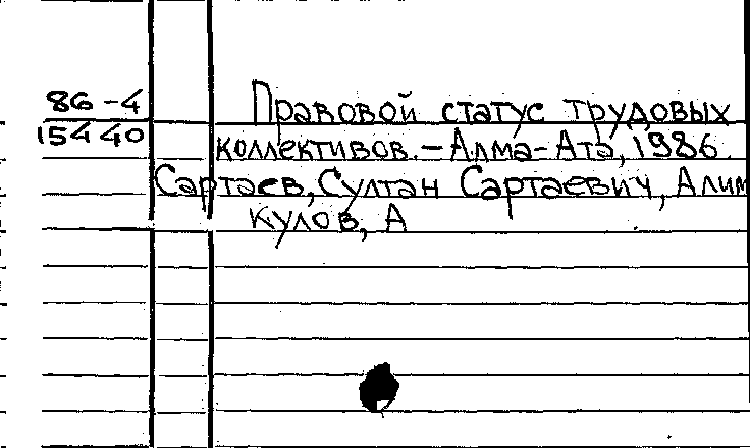 86-4
15440
Правовой статус трудовых
коллективов.-Алма-Ата, 1986.
Сартаев, Султан Сартаевич, Алим
кулов, А